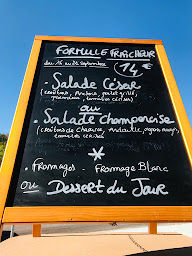 FORMULE FRAÎCHEUR
du 16 au 22 Septembre 14€
. Salade César
(croûtons, Anchois, poulet grillé,
parmesan, tomates cerises)
ou
. Salade champenoise
(croûtons de chaource, andouille, oignons rouges,
tomates cerises
. Fromages - Fromage Blanc
ou Dessert du Jour